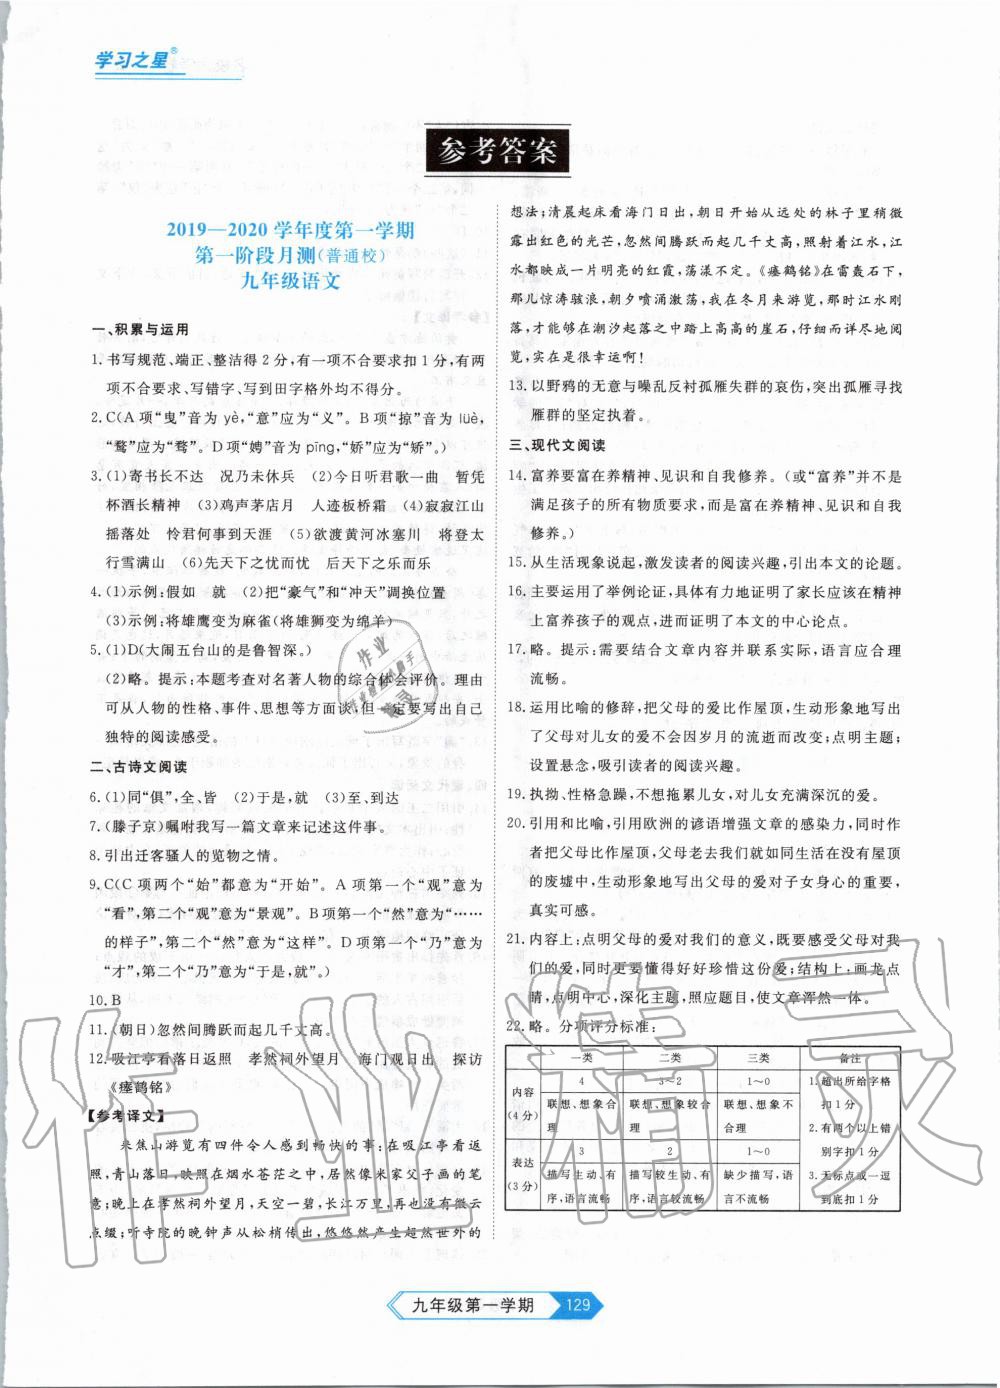 学习之星®
参考答案
2019—2020 学年度第一学期
第一阶段月测(普通校)
九年级语文
一、积累与运用
1. 书写规范、端正、整洁得 2 分,有一项不合要求扣 1 分,有两
项不合要求、写错字、写到田字格外均不得分。
2. C(A 项“曳”音为 yè,“意”应为“义”。B 项“掠”音为 lüè,
“鹜”应为“骛”。D 项“娉”音为 pīng,“娇”应为“矫”。)
3. (1)寄书长不达　况乃未休兵　(2)今日听君歌一曲　暂凭
杯酒长精神　(3)鸡声茅店月　人迹板桥霜　(4)寂寂江山
摇落处　怜君何事到天涯　(5)欲渡黄河冰塞川　将登太
行雪满山　(6)先天下之忧而忧　后天下之乐而乐
4. (1)示例:假如　就　(2)把“豪气”和“冲天”调换位置
(3)示例:将雄鹰变为麻雀(将雄狮变为绵羊)
5. (1)D(大闹五台山的是鲁智深。)
(2)略。提示:本题考查对名著人物的综合体会评价。理由
可从人物的性格、事件、思想等方面谈,但一定要写出自己
独特的阅读感受。
二、古诗文阅读
6. (1)同“俱”,全、皆　(2)于是,就　(3)至、到达
7. (滕子京)嘱咐我写一篇文章来记述这件事。
8. 引出迁客骚人的览物之情。
9. C(C 项两个“始”都意为“开始”。A 项第一个“观”意为
“看”,第二个“观”意为“景观”。B 项第一个“然”意为“……
的样子”,第二个“然”意为“这样”。D 项第一个“乃”意为
“才”,第二个“乃”意为“于是,就”。)
10. B
11. (朝日)忽然间腾跃而起几千丈高。
12. 吸江亭看落日返照　孝然祠外望月　海门观日出　探访
《瘗鹤铭》
【参考译文】
来焦山游览有四件令人感到畅快的事:在吸江亭看返
照,青山落日,映照在烟水苍茫之中,居然像米家父子画的笔
意;晚上在孝然祠外望月,天空一碧,长江万里,再也没有微云
点缀;听寺院的晚钟声从松梢传出,悠悠然产生超然世外的
想法;清晨起床看海门日出,朝日开始从远处的林子里稍微
露出红色的光芒,忽然间腾跃而起几千丈高,照射着江水,江
水都映成一片明亮的红霞,荡漾不定。《瘗鹤铭》在雷轰石下,
那儿惊涛骇浪,朝夕喷涌激荡,我在冬月来游览,那时江水刚
落,才能够在潮汐起落之中踏上高高的崖石,仔细而详尽地阅
览,实在是很幸运啊!
13. 以野鸦的无意与噪乱反衬孤雁失群的哀伤,突出孤雁寻找
雁群的坚定执着。
三、现代文阅读
14. 富养要富在养精神、见识和自我修养。(或“富养”并不是
满足孩子的所有物质要求,而是富在养精神、见识和自我
修养。)
15. 从生活现象说起,激发读者的阅读兴趣,引出本文的论题。
16. 主要运用了举例论证,具体有力地证明了家长应该在精神
上富养孩子的观点,进而证明了本文的中心论点。
17. 略。提示:需要结合文章内容并联系实际,语言应合理
流畅。
18. 运用比喻的修辞,把父母的爱比作屋顶,生动形象地写出
了父母对儿女的爱不会因岁月的流逝而改变;点明主题;
设置悬念,吸引读者的阅读兴趣。
19. 执拗、性格急躁、不想拖累儿女,对儿女充满深沉的爱。
20. 引用和比喻,引用欧洲的谚语增强文章的感染力,同时作
者把父母比作屋顶,父母老去我们就如同生活在没有屋顶
的废墟中,生动形象地写出父母的爱对子女身心的重要,
真实可感。
21. 内容上:点明父母的爱对我们的意义,既要感受父母对我
们的爱,同时更要懂得好好珍惜这份爱;结构上:画龙点
睛,点明中心,深化主题,照应题目,使文章浑然一体。
22. 略。分项评分标准:
一类　二类　三类　备注
内容(4 分)　4　3~2　1~0
联想、想象合理　联想、想象较合理　联想、想象不合理
表达(3 分)　3　2　1~0
描写生动、有序,语言流畅　描写较生动、有序,语言较流畅　缺少描写,语言不流畅
1. 超出所给字格扣 1 分
2. 有两个以上错别字扣 1 分
3. 无标点或一逗到底扣 1 分
九年级第一学期　129
作业精灵